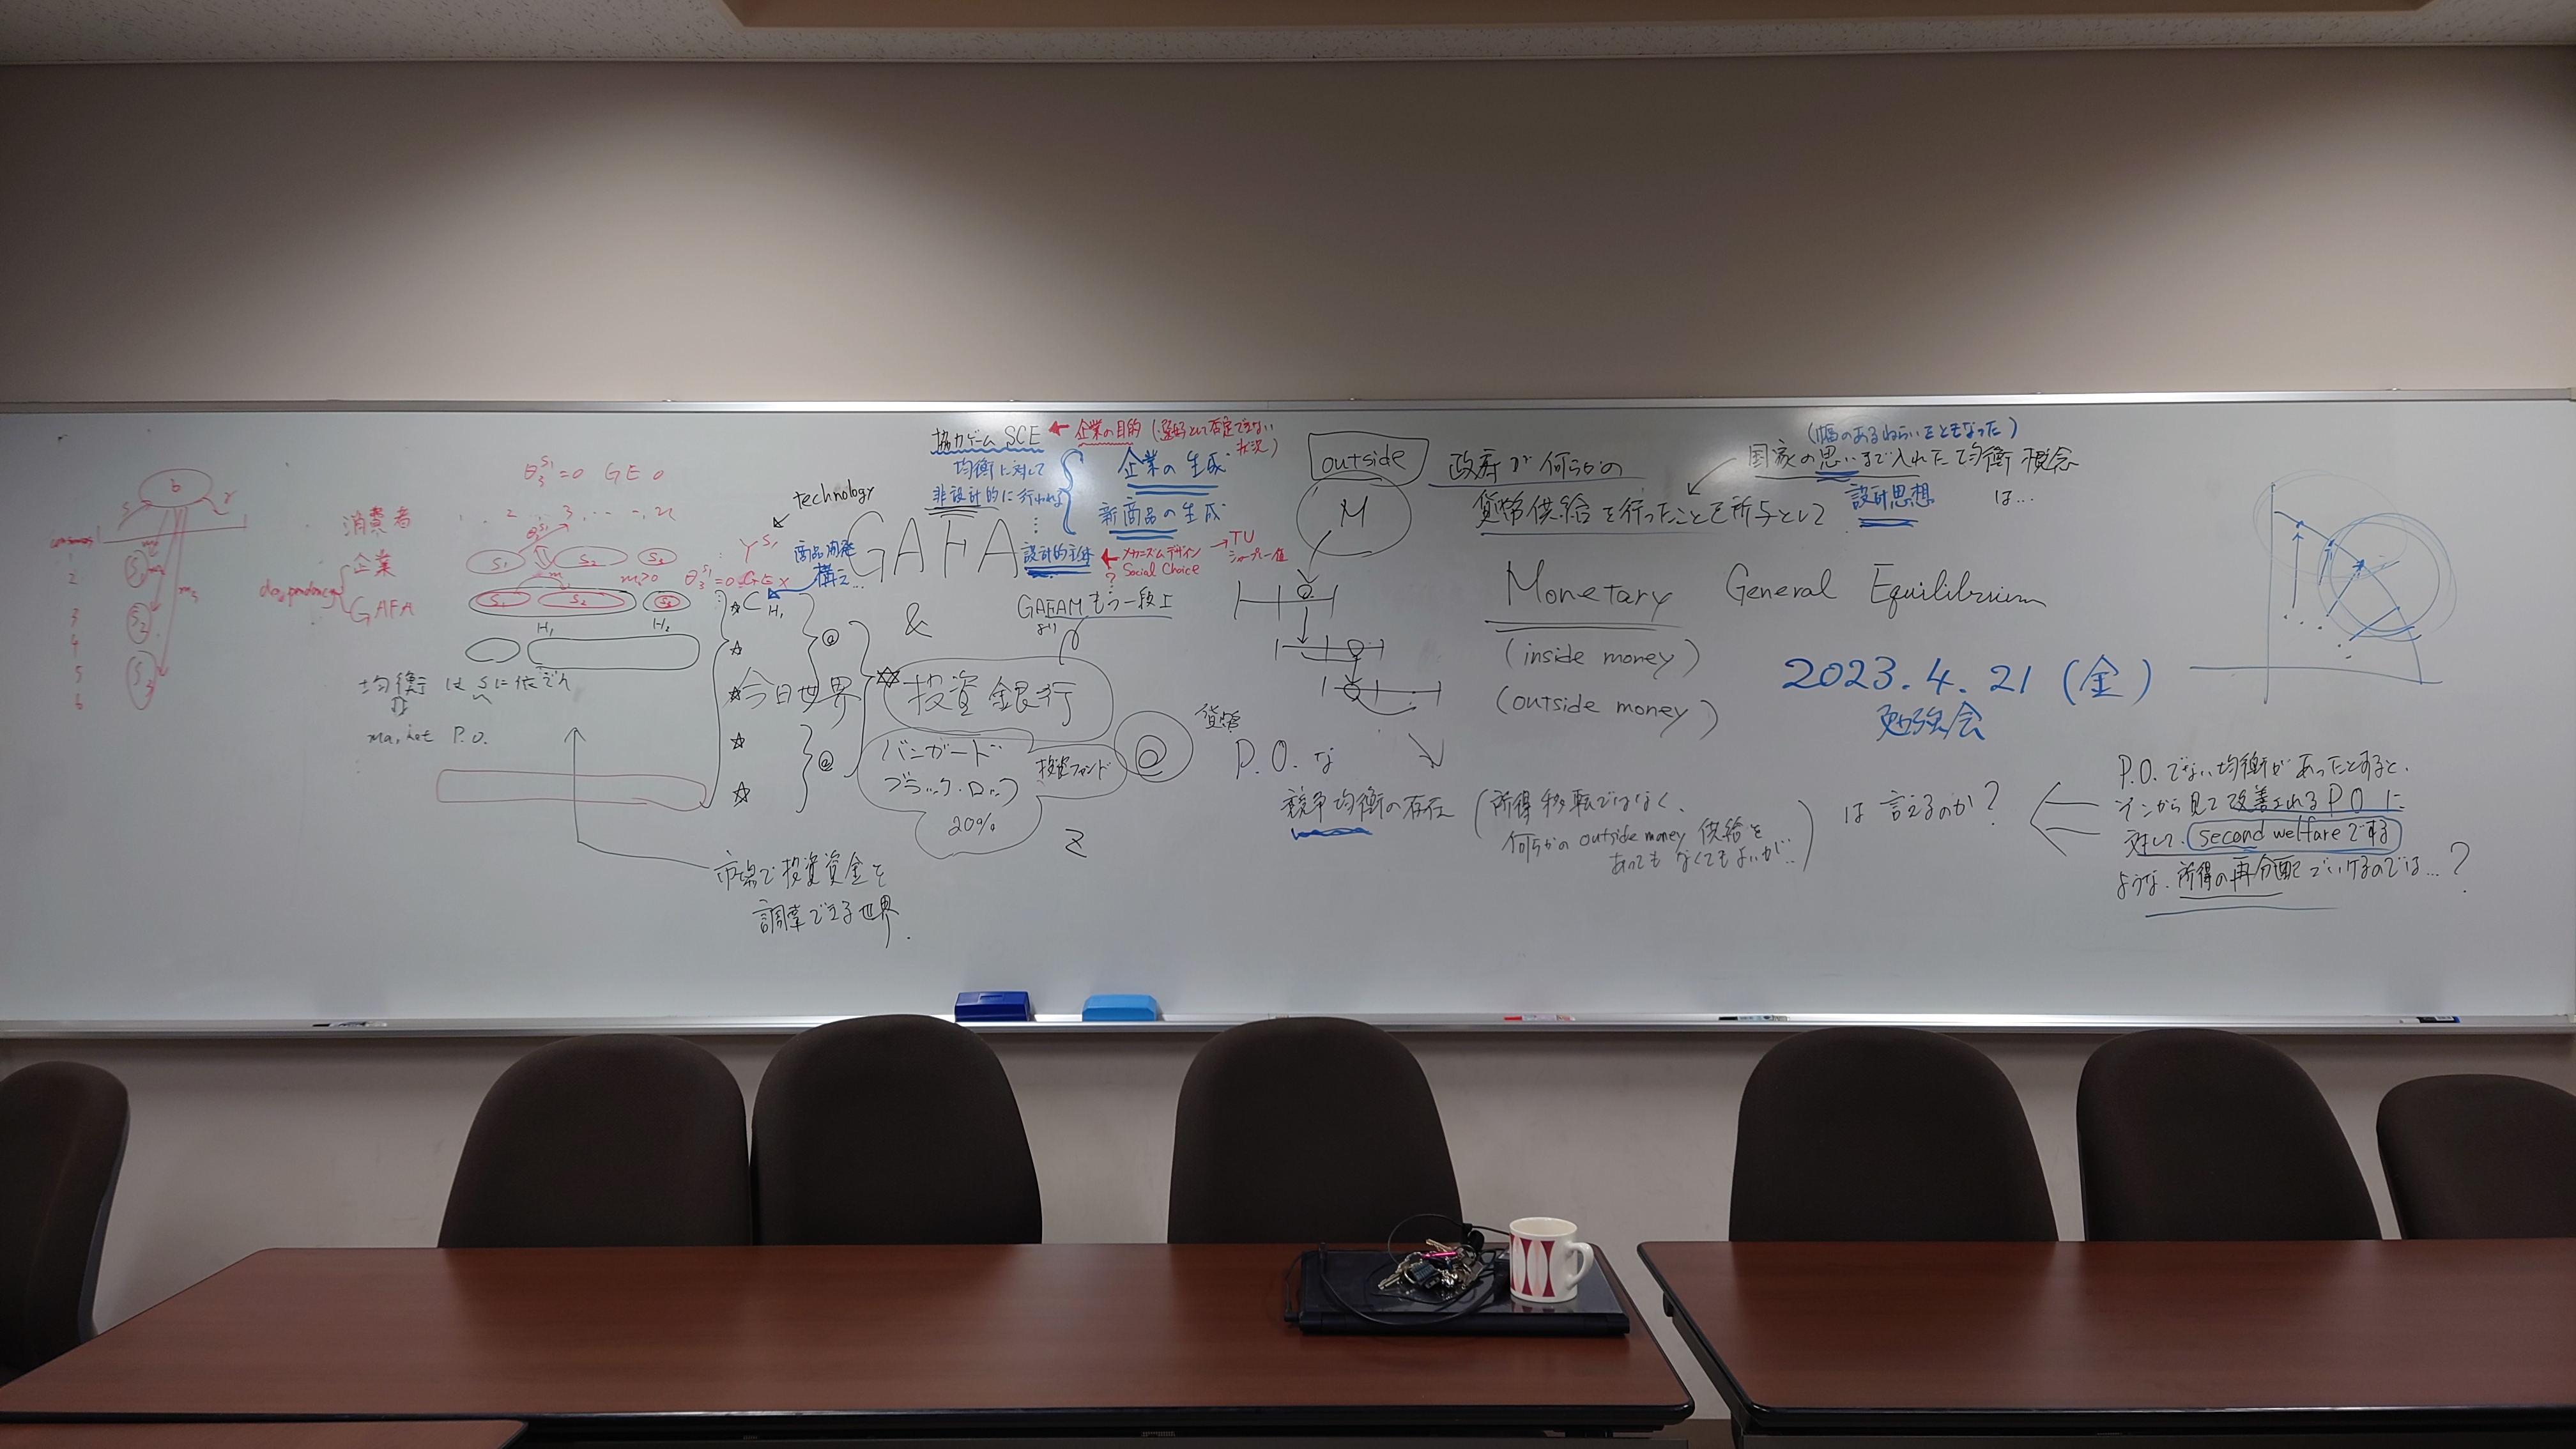 b
1
2
3
4
5
6
S₂
S₃
θ₃^{S₁}=0 GE 0
消費者
2 3
企業
GAFA
S₁ S₂ S₃
S₁ S₂ S₃
H₁ H₂
均衡はSに依ぞん
P.O.
市場で投資資金を
調達できる世界.
technology
Y^{S₁}
商品開発
構え...
今日世界
協力ゲーム SCE ← 企業の目的 (選好として否定できない
状況)
均衡に対して
非設計的に行われる
企業の生成
新商品の生成
GAFA
設計的主体 ← メカニズムデザイン → TU
Social Choice シャープレー値
?
GAFAM もう一段上
&
投資銀行
バンガード
ブラック・ロック
20%
投資ファンド
@
貨幣
outside
M
政府が何らかの
貨幣供給を行ったことを所与として
(幅のあるねらいをともなった)
国家の思いまで入れた均衡概念
は...
設計思想
Monetary General Equilibrium
(inside money)
(outside money)
2023.4.21 (金)
勉強会
P.O.な
競争均衡の存在 (所得移転ではなく、
何らかの outside money 供給を
あっても なくてもよいが..)
は言えるのか?
P.O.でない均衡があったとすると、
そこから見て改善されるPOに
対して、second welfareでする
ような、所得の再分配でいけるのでは...?